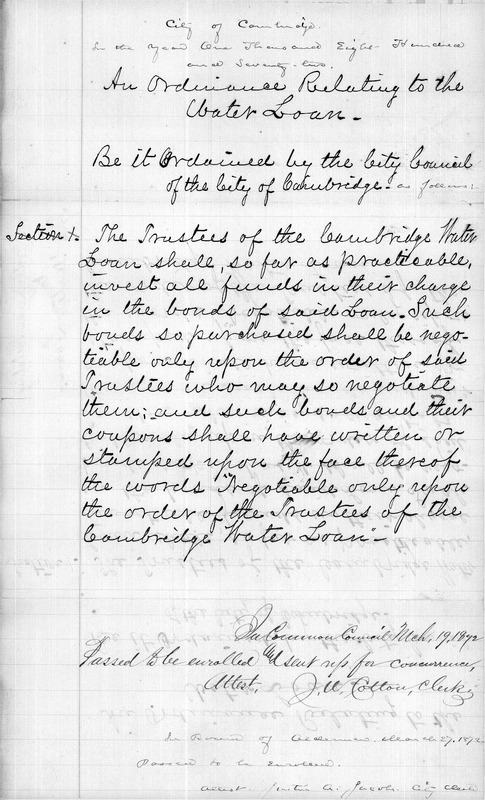 City of Cambridge.
In the year One Thousand Eight Hundred
and Seventy-two.
An Ordinance Relating to the
Water Loan.
Be it Ordained by the City Council
of the City of Cambridge. as follows:
Section 1. The Trustees of the Cambridge Water
Loan shall, so far as practicable,
invest all funds in their charge
in the bonds of said Loan. Such
bonds so purchased shall be nego-
tiable only upon the order of said
Trustees who may so negotiate
them; and such bonds and their
coupons shall have written or
stamped upon the face thereof
the words "Negotiable only upon
the order of the Trustees of the
Cambridge Water Loan."
In Common Council Mch. 19, 1872
Passed to be enrolled & sent up for concurrence,
Attest, J. W. Cotton, Clerk.
In Board of Aldermen. March 27, 1872
Passed to be Enrolled.
Attest Justin A. Jacobs. City Clerk